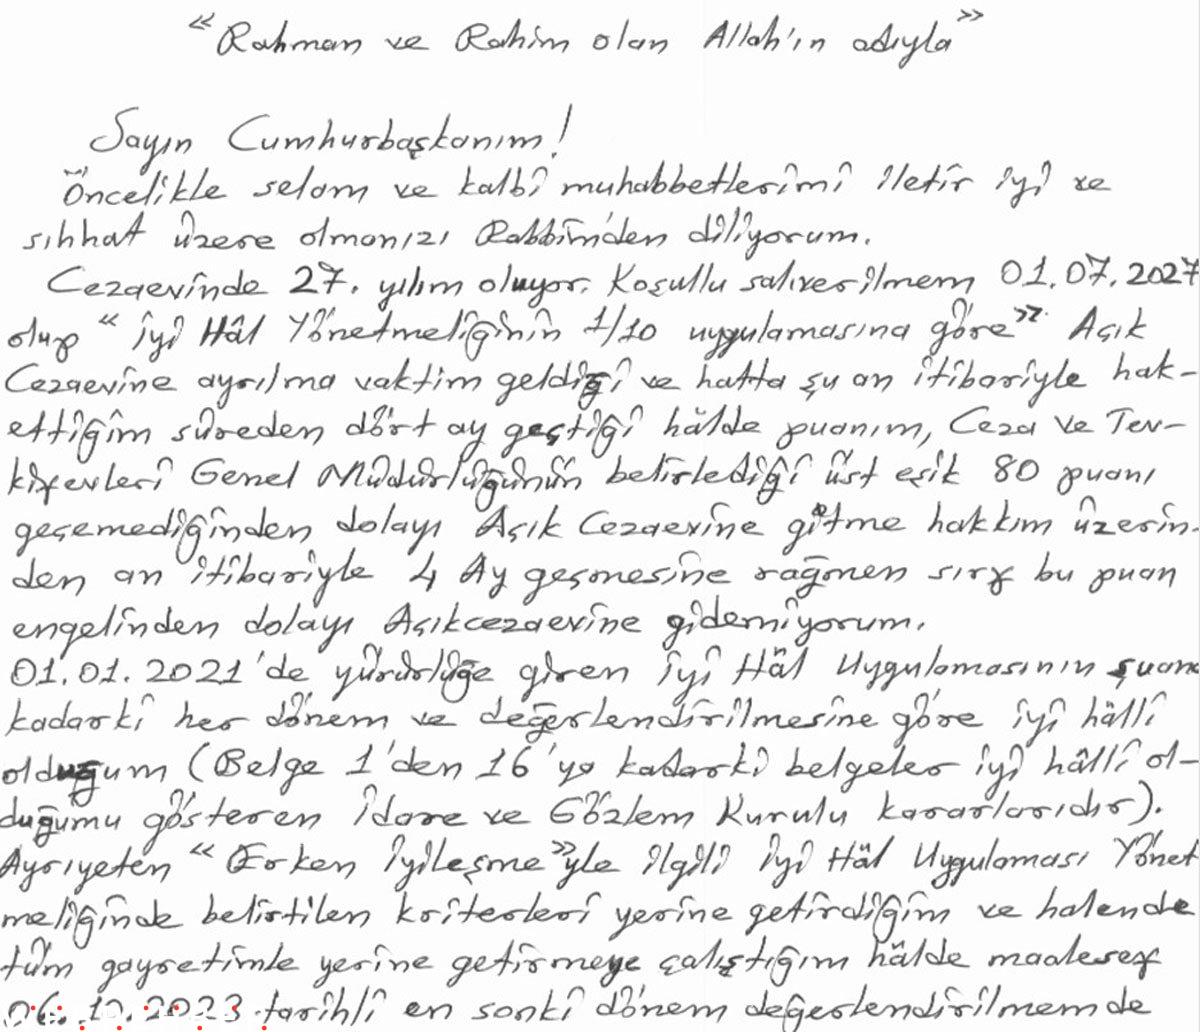 “Rahman ve Rahim olan Allah'ın adıyla”
Sayın Cumhurbaşkanım!
Öncelikle selam ve kalbî muhabbetlerimi iletir iyi ve
sıhhat üzere olmanızı Rabbim'den diliyorum.
Cezaevinde 27. yılım oluyor. Koşullu salıverilmem 01.07.2027
olup “İyi Hâl Yönetmeliğinin 1/10 uygulamasına göre”. Açık
Cezaevine ayrılma vaktim geldiği ve hatta şu an itibariyle hak-
ettiğim süreden dört ay geçtiği hâlde puanım, Ceza ve Tev-
kifevleri Genel Müdürlüğünün belirlediği üst eşik 80 puanı
geçemediğinden dolayı Açık Cezaevine gitme hakkım üzerin-
den an itibariyle 4 Ay geçmesine rağmen sırf bu puan
engelinden dolayı Açıkcezaevine gidemiyorum.
01.01.2021'de yürürlüğe giren İyi Hâl Uygulamasının şuana
kadarki her dönem ve değerlendirilmesine göre iyi hâlli
olduğum (Belge 1'den 16'ya kadarki belgeler iyi hâlli ol-
duğumu gösteren İdare ve Gözlem Kurulu kararlarıdır).
Ayrıyeten “Erken İyileşme”yle ilgili İyi Hâl Uygulaması Yönet
meliğinde belirtilen kriterleri yerine getirdiğim ve halende
tüm gayretimle yerine getirmeye çalıştığım hâlde maalesef
06.12.2023 tarihli en sonki dönem değerlendirilmemde